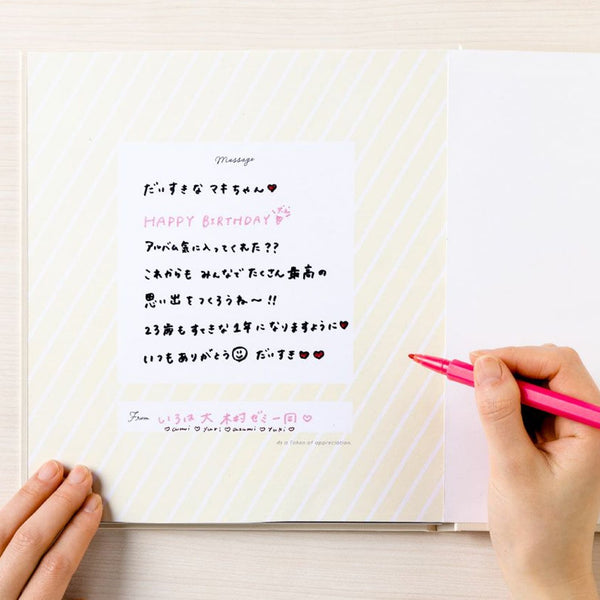 Message
だいすきな マキちゃん♥
HAPPY BIRTHDAY
アルバム気に入ってくれた??
これからも みんなで たくさん 最高の
思い出をつくろうね〜!!
23歳もすてきな1年になりますように♥
いつもありがとう☺ だいすき♥♥
From いろは大 木村ゼミ一同♡
♡ami ♡yuri♡asumi♡yuki♡
As a token of appreciation.